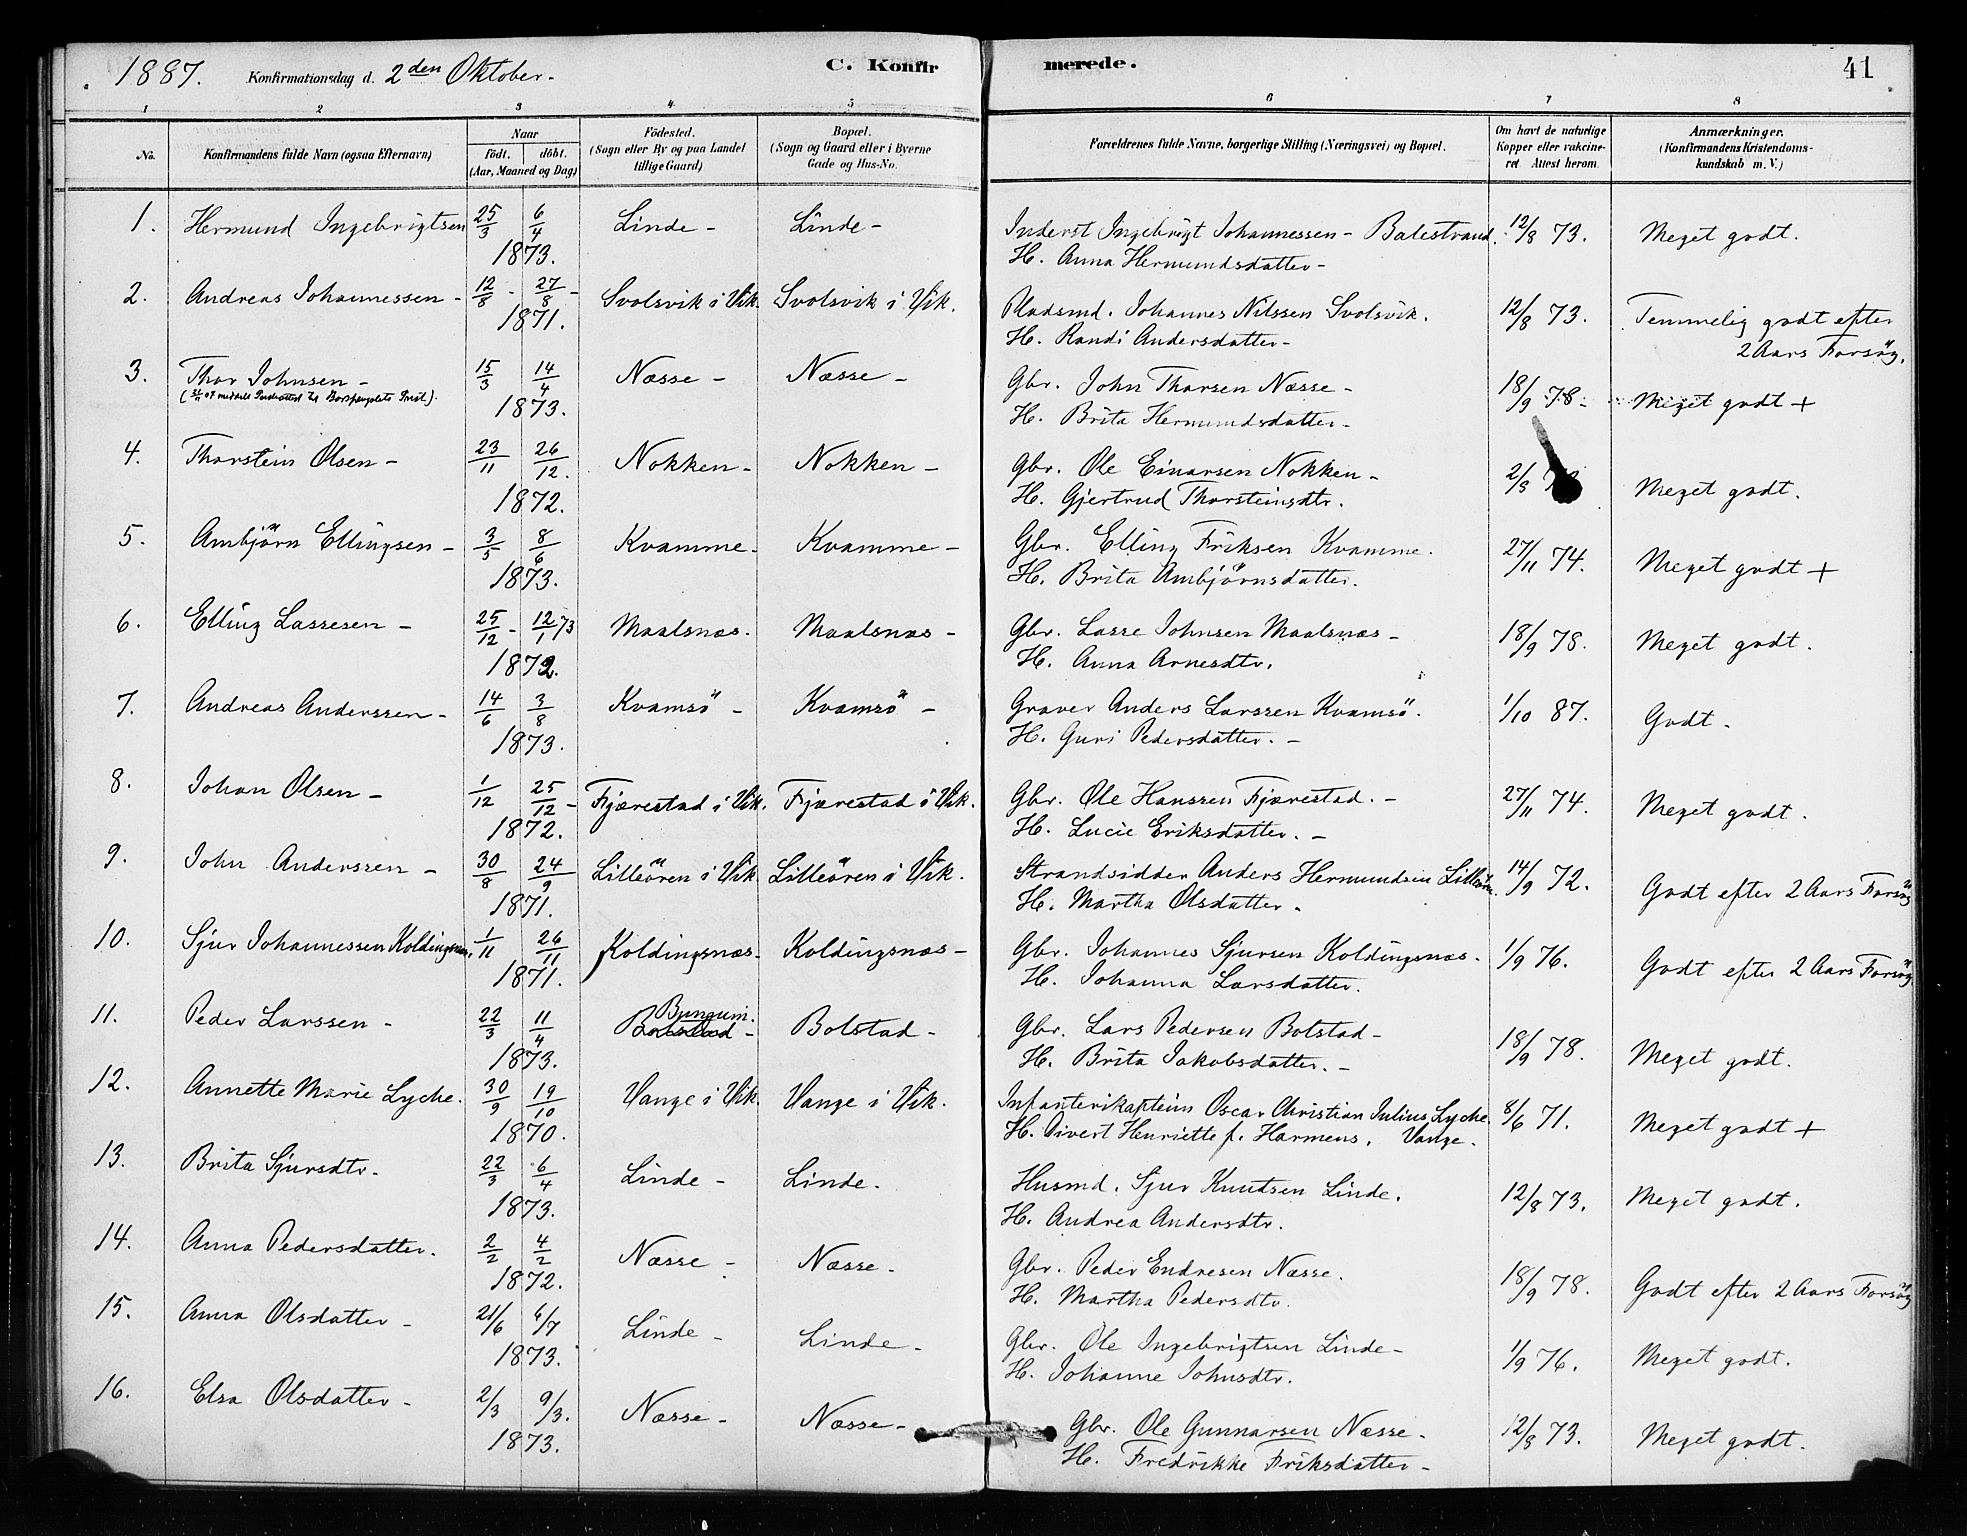 1887. Konfirmationsdag d. 2den Oktober. C. Konfir merede. 41
1 2 3 4 5 6 7 8
No. Konfirmandens fulde Navn (ogsaa Efternavn) Naar født. døbt. (Aar, Maaned og Dag) Fødested. (Sogn eller By og paa Landet tillige Gaard) Bopæl. (Sogn og Gaard eller i Byerne Gade og Hus-No. Forældrenes fulde Navne, borgerlige Stilling (Næringsvei) og Bopæl. Om havt de naturlige Kopper eller vakcineret. Attest herom. Anmærkninger. (Konfirmandens Kristendomskundskab m. V.)
1. Hermund Ingebrigtsen 25/3 6/4 Linde - Linde - Inderst Ingebrigt Johannessen - Balestrand. 12/8 73. Meget godt.
1873. H. Anna Hermundsdatter -
2. Andreas Johannessen - 12/8 - 27/8 - Svolsvik i Vik. Svolsvik i Vik. Pladsmd. Johannes Nilssen Svolsvik. 12/8 73. Temmelig godt efter
1871. H. Randi Andersdatter - 2 Aars Forsög.
3. Thor Johnsen - 15/3 14/4 Næsse - Næsse - Gbr. John Thorsen Næsse - 18/9 78 - Meget godt +
1873. H. Brita Hermundsdatter -
4. Thorstein Olsen - 23/11 26/12. Nokken - Nokken - Gbr. Ole Einarsen Nokken - 2/8 Meget godt.
1872. H. Gjertrud Thorsteinsdtr.
5. Ambjörn Ellingsen - 3/5 8/6 Kvamme - Kvamme - Gbr. Elling Eriksen Kvamme. 27/11 74. Meget godt +
1873. H. Brita Ambjörnsdatter.
6. Elling Lassesen - 25/12 - 12/1 73 Maalsnæs. Maalsnæs - Gbr. Lasse Johnsen Maalsnæs - 18/9 78. Meget godt.
1872. H. Anna Arnesdtr.
7. Andreas Anderssen - 14/6 3/8 Kvamsö - Kvamsö - Graver Anders Larssen Kvamsö. 1/10 87. Godt.
1873. H. Guri Pedersdatter. -
8. Johan Olsen - 1/12 25/12 - Fjærestad i Vik. Fjærestad i Vik. Gbr. Ole Hanssen Fjærestad. - 27/11 74. Meget godt.
1872. H. Lucie Eriksdatter. -
9. John Anderssen - 30/8 24/9 Lilleören i Vik. Lilleören i Vik. Strandsidder Anders Hermundsen Lilleörn. 14/9 72. Godt efter 2 Aars Forsög
1871. H. Martha Olsdatter.
10. Sjur Johannessen Koldingsnæs. 1/11 26/11 Koldingsnæs - Koldingsnæs - Gbr. Johannes Sjursen Koldingsnæs. 1/9 76. Godt efter 2 Aars Forsög
1871. H. Johanna Larsdatter.
Bungum.
11. Peder Larssen - 22/3 11/4 Bolstad - Bolstad - Gbr. Lars Pedersen Bolstad - 18/9 78. Meget godt.
1873. H. Brita Jakobsdatter. -
12. Annette Marie Lyche. 30/9 19/10 Vange i Vik. Vange i Vik. Infanterikaptein Oscar Christian Julius Lyche. 8/6 71. Meget godt +
1870. H. Divert Henriette f. Harmens. Vange.
13. Brita Sjursdtr. 22/3 6/4 Linde - Linde. Husmd. Sjur Knutsen Linde. 12/8 73. Meget godt.
1873. H. Andrea Andersdtr.
14. Anna Pedersdatter. 2/2 4/2 Næsse - Næsse - Gbr. Peder Endresen Næsse. 18/9 78. Godt efter 2 Aars Forsög
1872. H. Martha Pedersdtr.
15. Anna Olsdatter - 21/6 6/7 Linde - Linde - Gbr. Ole Ingebrigtsen Linde - 1/9 76. Meget godt.
1873. H. Johanne Johnsdtr.
16. Elsa Olsdatter - 2/3 9/3. Næsse - Næsse - Gbr. Ole Gunnarsen Næsse - 12/8 73. Meget godt.
1873. H. Fredrikke Eriksdatter -